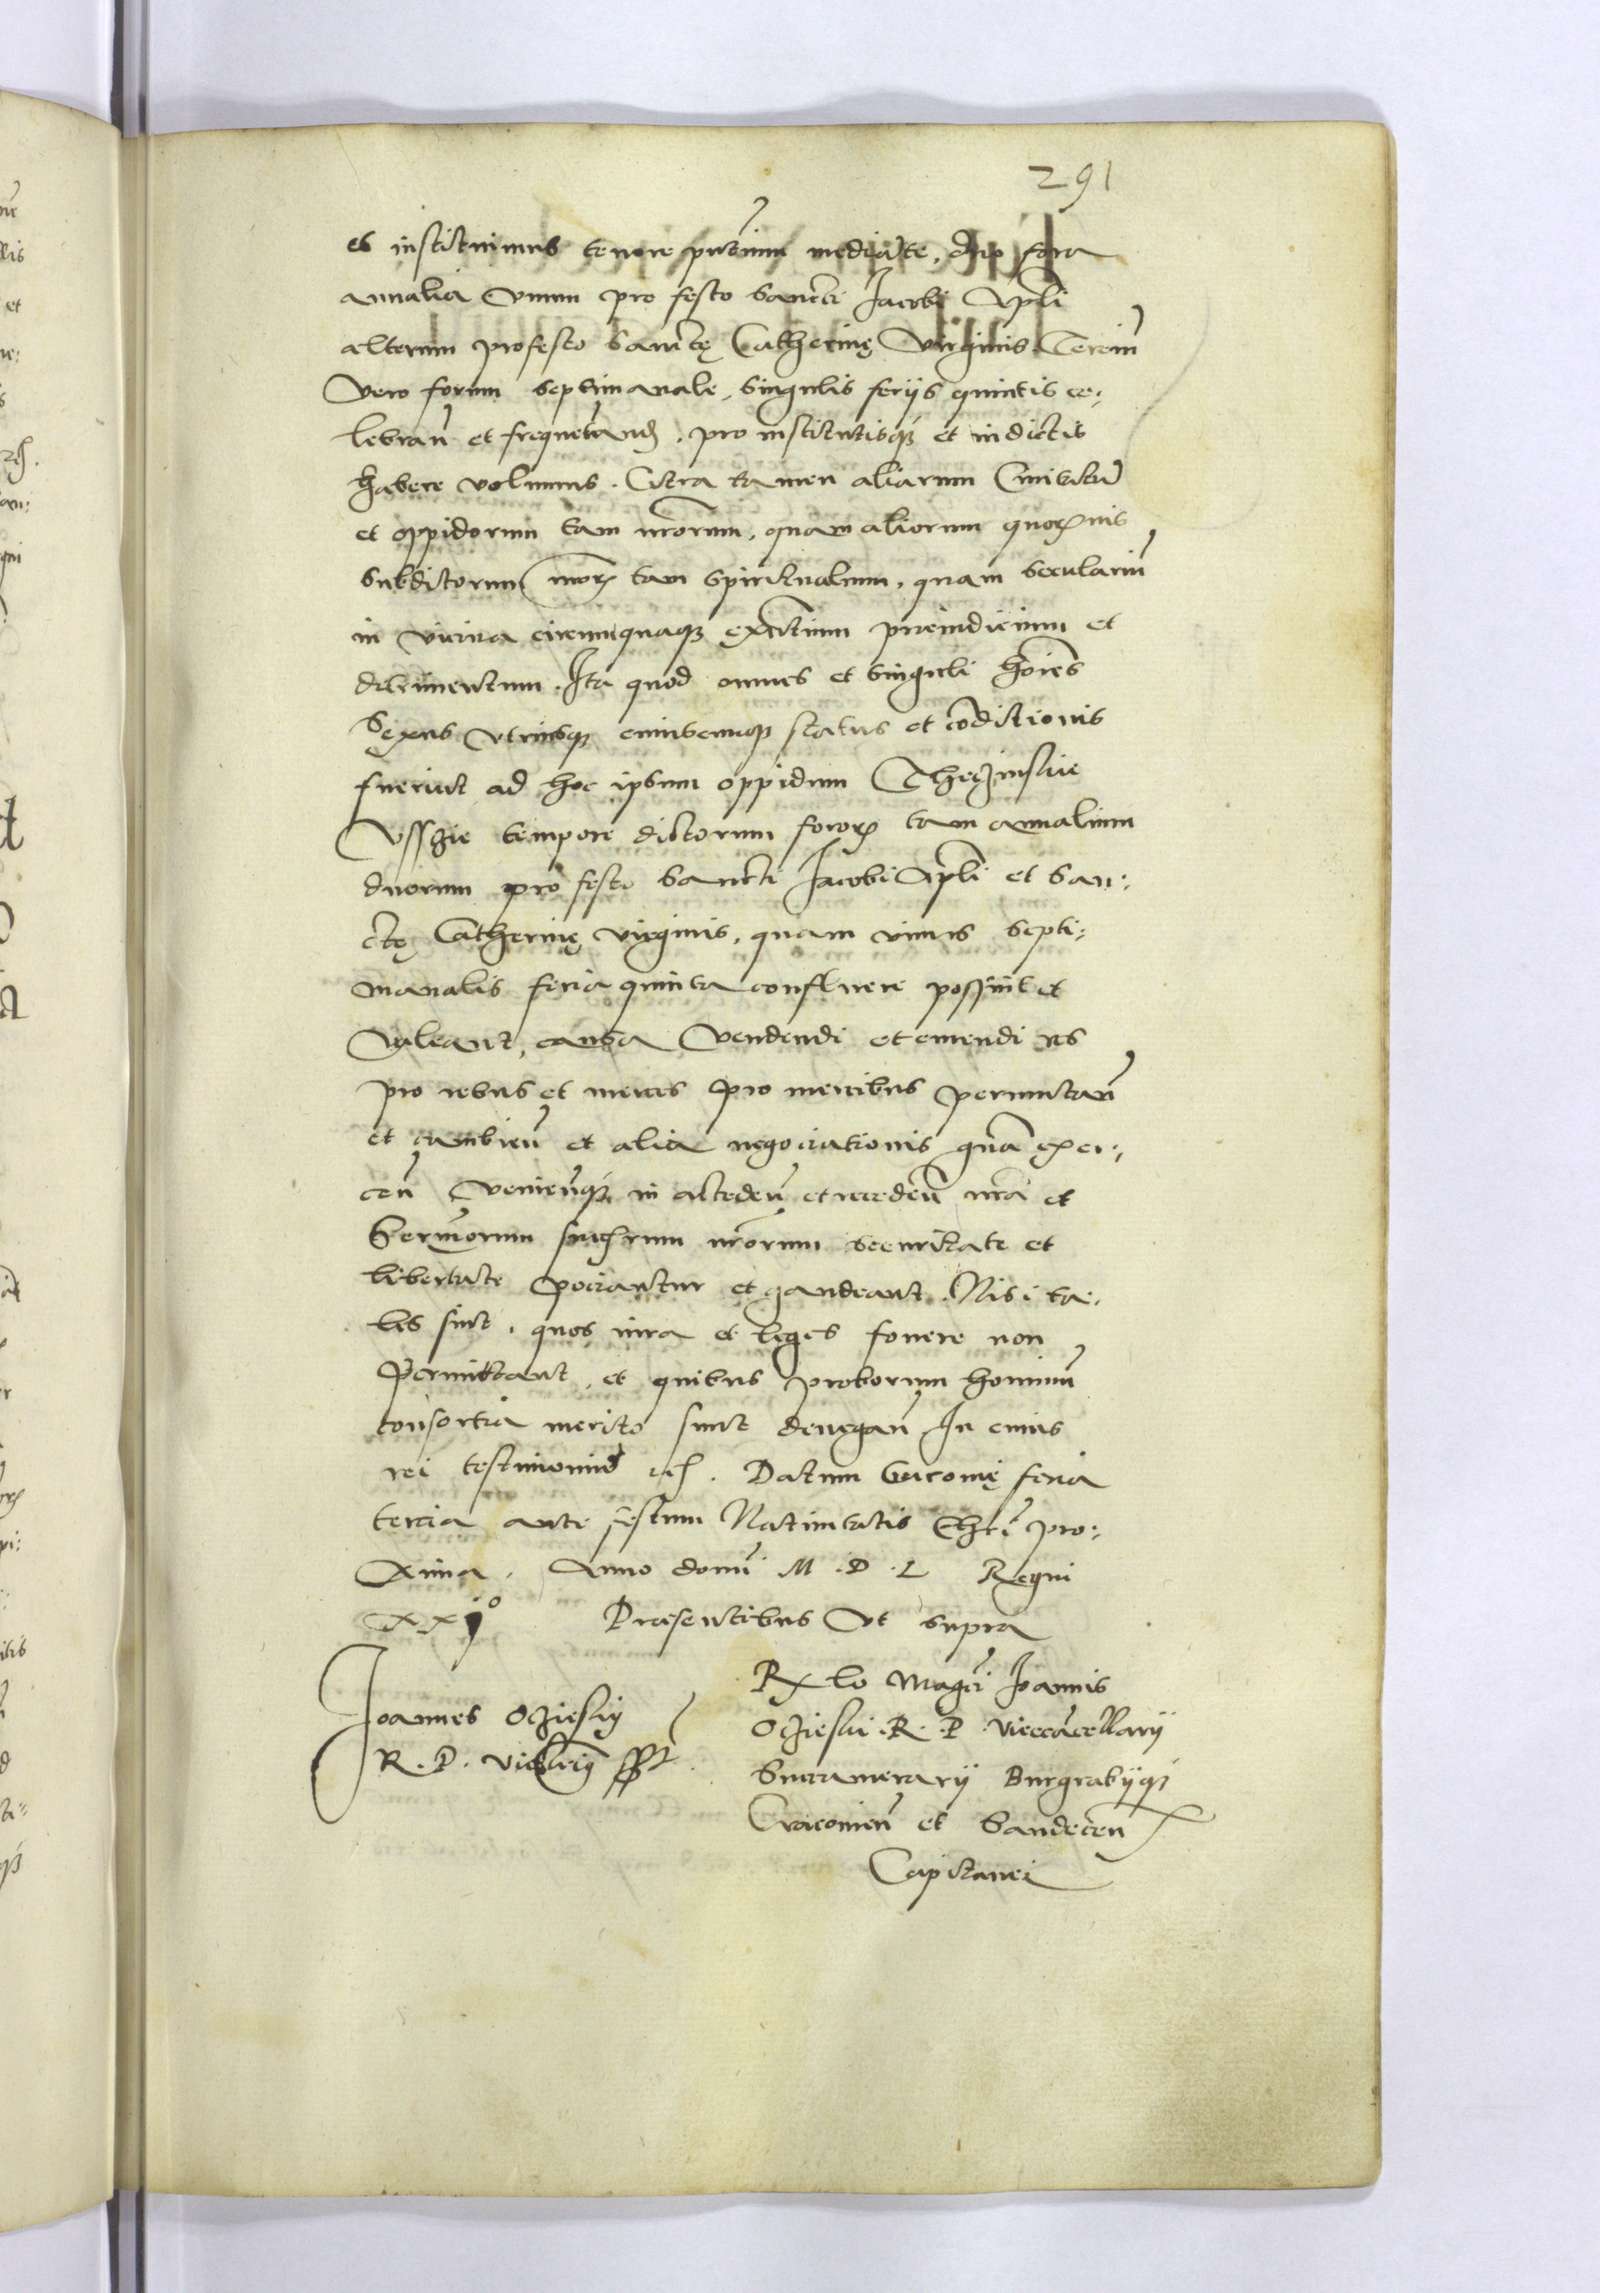 291
et instituimus tenore pntium mediate, duo fora
annalia Unum pro festo Sancti Jacobi Apli
alterum pro festo Sanctę Catherinę Virginis Terciu
Vero forum septimanale, singulis feriis quintis ce:
lebran et frequetand, pro institutisq et indictis
habere volumus. Citra tamen aliarum Civitatu
et oppidorum tam nrorum, quam aliorum quorumvis
Subditorum nror tam spiritualium, quam seculariu
in vicina circumquaq existitium preiudicium et
detrimentum. Ita quod omnes et singuli hoies
Sexus utriusq cuiuscumq status et coditionis
fuerint ad hoc ipsum oppidum Theczinskie
Usszie tempore dictorum foror tam annalium
duorum pro festo Sancti Jacobi Apli et San:
ctę Catherinę virginis, quam unius septi:
manalis feria quinta confluere possint et
Valeant, causa Vendendi et emendi res
pro rebus et merces pro mercibus permutan
et cambien et alia negociationis gna exer:
cen Venienq, in accedeu et recedeu nra et
Sermorum succrum nrorum securitate et
libertate pociantur et gaudeant. Nisi ta:
les sint, quos iura et leges fovere non
Permittant, et quibus proborum hominu
consortia merito sunt denegan In cuius
rei testimoniu rc. Datum Cracovię feria
tercia ante festum Nativitatis Chri pro:
xima. Anno domi M.D.L Regni
xxj° Praesentibus Ut supra
Joannes Oczieski
R. P. Vicecancellarius sspt
Relo Magci Joannis
Oczieski. R. P. Vicecacellarii
Succamerarii Burgrabiiq
Cracovien et Sandecen
Capitanei